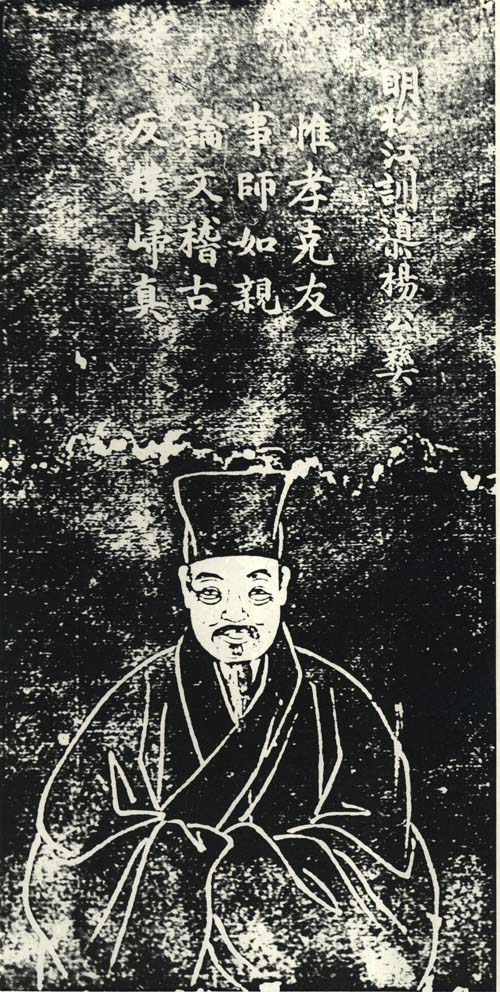 明松江訓導楊公彝
惟孝克友
事師如親
論文稽古
反樸歸真